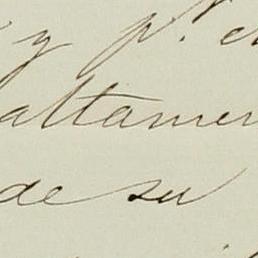 y p.r e
altamen
de su